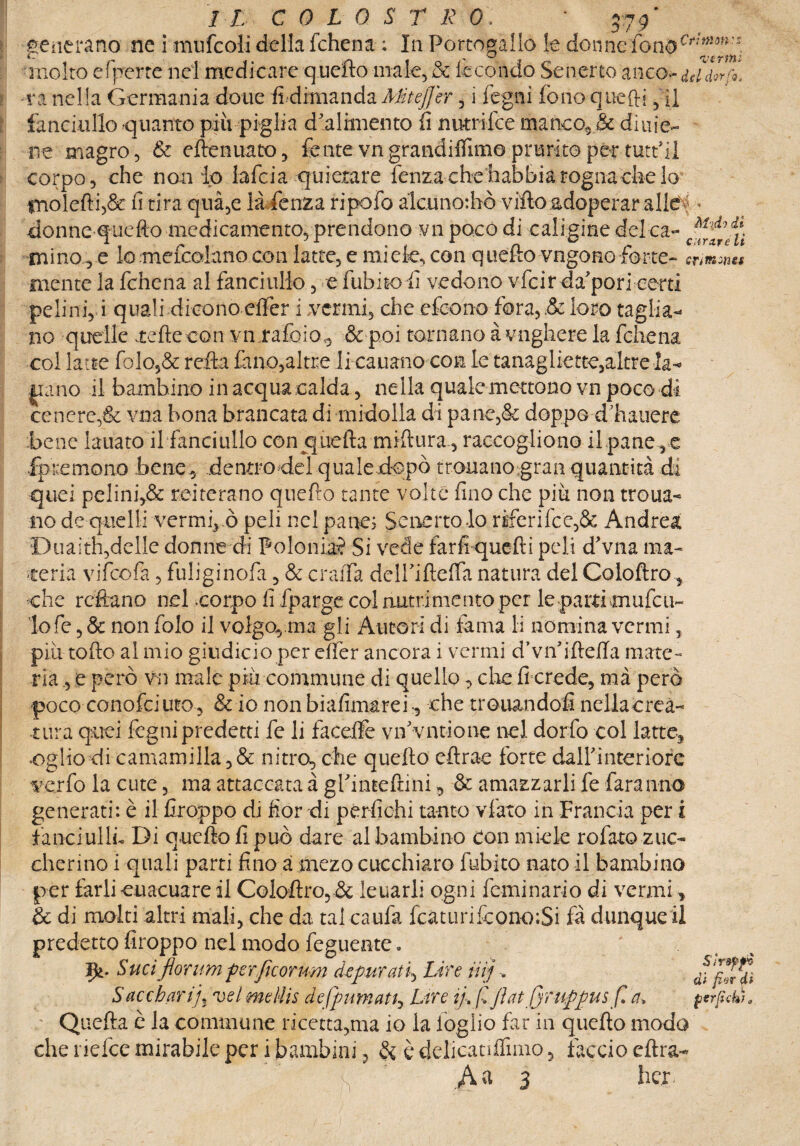 IL COLOSTRO. 379
generano ne i mufcoli della fchena : In Portogallo le donne fono Crimon:s
molto efperte nel medicare quefto male, & fecondo Senerto anco- vermi
ra nella Germania doue fi dimanda Miteffer, i fegni fono quefti, il del dorfo.
fanciullo quanto più piglia d'alimento fi nutrifce manco, & diuie-
ne magro, & eftenuato, fente vn grandiffimo prurito per tutt'il
corpo, che non lo lafcia quietare fenza che habbia rogna che lo
molefti,& fi tira quà,e là fenza ripofo alcuno:hò vifto adoperar alle
donne quefto medicamento, prendono vn poco di caligine del ca- Modo di
mino, e lo mefcolano con latte, e miele, con quefto vngono forte- curare li
mente la fchena al fanciullo, e fubito fi vedono vfcir da'pori certi crimones
pelini, i quali dicono effer i vermi, che efcono fora, & loro taglia-
no quelle tefte con vn rafoio, & poi tornano à vnghere la fchena
col latte folo,& refta fano,altre li cauano con le tanagliette,altre la-
uano il bambino in acqua calda, nella quale mettono vn poco di
cenere,& vna bona brancata di midolla di pane,& doppo d'hauere
bene lauato il fanciullo con quefta miftura, raccogliono il pane, e
fpremono bene, dentro del quale dopò trouano gran quantità di
quei pelini,& reiterano quefto tante volte fino che più non troua-
no de quelli vermi, ò peli nel pane; Senerto lo riferifce,& Andrea
Duaith,delle donne di Polonia? Si vede farfi quefti peli d'vna ma-
teria vifcofa, fuliginofa, & craffa dell'ifteffa natura del Coloftro,
che reftano nel corpo fi fparge col nutrimento per le parti mufcu-
lofe, & non folo il volgo, ma gli Autori di fama li nomina vermi,
più tofto al mio giudicio per effer ancora i vermi d'vn'ifteffa mate-
ria, e però vn male più commune di quello, che fi crede, mà però
poco conofciuto, & io non biafimarei, che trouandofi nella crea-
tura quei fegni predetti fe li faceffe vn'vntione nel dorfo col latte,
oglio di camamilla, & nitro, che quefto eftrae forte dall'interiore
verfo la cute, ma attaccata à gl'inteftini, & amazzarli fe faranno
generati: è il firoppo di fior di perfichi tanto vfato in Francia per i
fanciulli. Di quefto fi può dare al bambino con miele rofato zuc-
cherino i quali parti fino à mezo cucchiaro fubito nato il bambino
per farli euacuare il Coloftro, & leuarli ogni feminario di vermi,
& di molti altri mali, che da tal caufa fcaturifcono:Si fà dunque il
predetto firoppo nel modo feguente.
℞. Suci florum perficorum depurati, Lire iiij. Siroppo
Sacchari, vel mellis defpumati, Lire ij. f. flat fyruppus f. a. di fior di
perfichi.
Quefta è la commune ricetta,ma io la foglio far in quefto modo
che riefce mirabile per i bambini, & è delicatiffimo, faccio eftra-
Aa 3 her